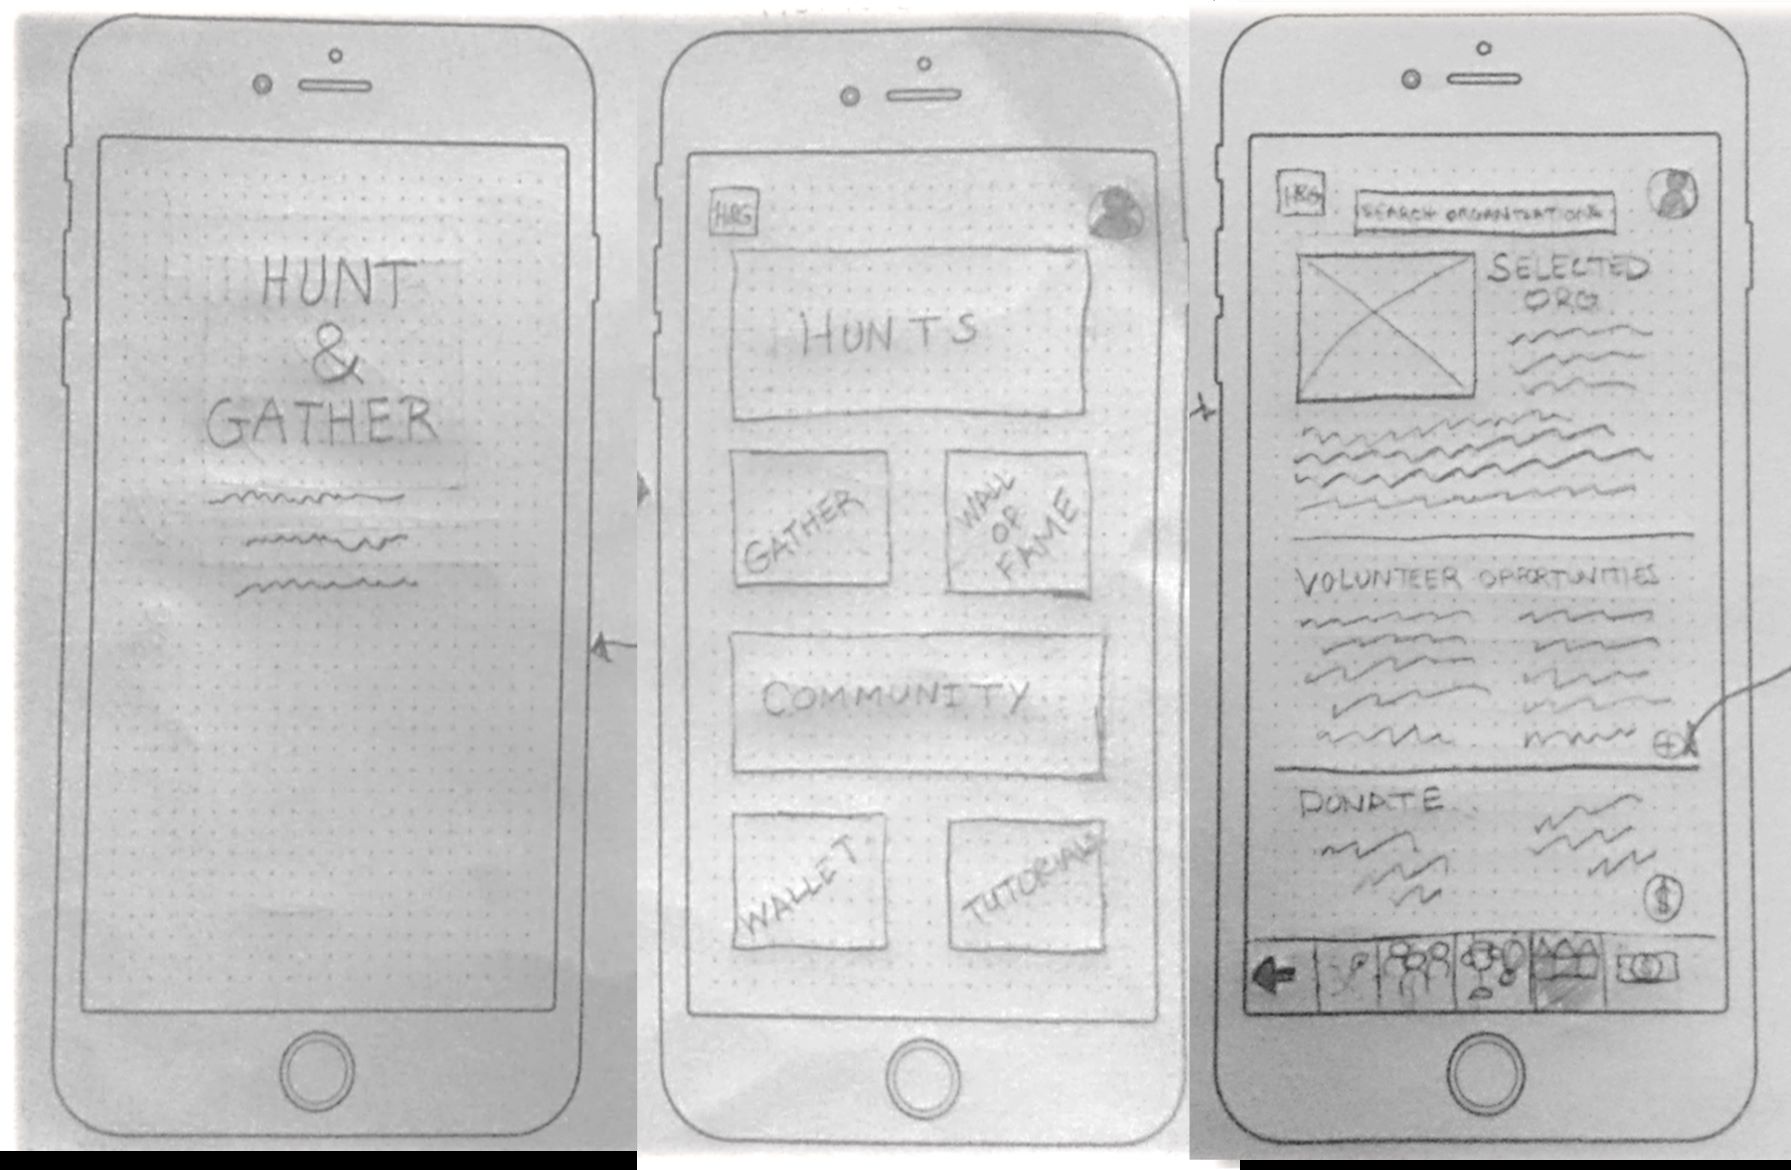 HUNT
&
GATHER
H&G
HUNTS
GATHER
WALL
OF
FAME
COMMUNITY
WALLET
TUTORIALS
H&G
SEARCH ORGANIZATIONS
SELECTED
ORG
VOLUNTEER OPPORTUNITIES
DONATE
$